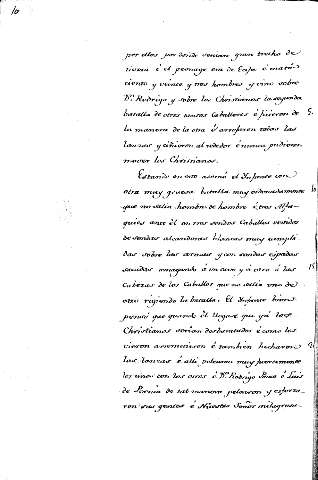 10
por ellos por donde venian gran trecho de
tierra é el peonage era de Enfa é mata
ciento y veinte y tres hombres y vino sobre
Dn. Rodrigo y sobre los Christianos la segunda
batalla de otros tantos Caballeros é fueron de
la manera de la otra é arrojeron todas las
lanzas y alderredor é nunca pudieron
mover los Christianos.
Estando en esto asomó el Infante con
otra muy gruesa batalla muy ordenadamente
que no salia hombre de hombre é tres Alfa-
quies ante él en tres sendos Caballos vestidos
de sendas alcandoras blancas muy cumpli
das sobre las armas y con sendas espadas
sacadas amagando á un cavo y á otro á las
Cabezas de los Caballos que no salia uno de
otro rigiendo la batalla. El Infante bien
pensó que quando él llegase que yá los
Christianos serian desbaratados é como los
vieron arremetieron é tambien hecharon
las lanzas é allí pelearon muy fuertemente
los unos con los otros é Dn. Rodrigo Ponce é Luis
de Pernia de tal manera pelearon y esforza-
ron sus gentes é Nuestro Señor milagrosa-
5.
10
15